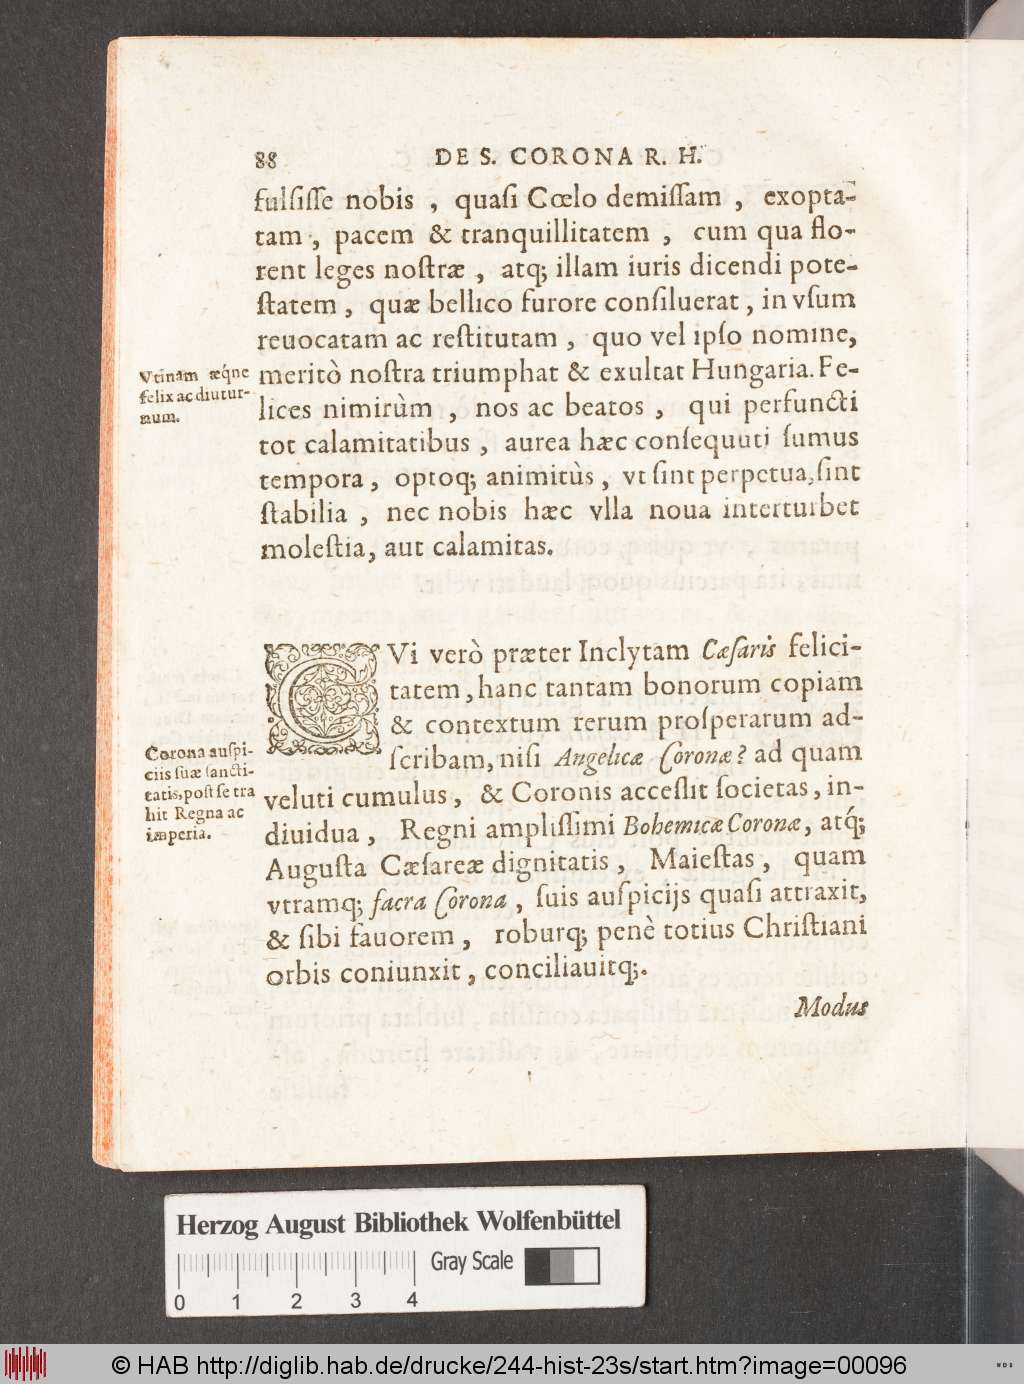 88 DE S. CORONA R. H.
fulſiſſe nobis , quaſi Cœlo demiſſam , exopta-
tam , pacem & tranquillitatem , cum qua flo-
rent leges noſtræ , atq; illam iuris dicendi pote-
ſtatem , quæ bellico furore conſiluerat , in vſum
reuocatam ac reſtitutam , quo vel ipſo nomine,
meritò noſtra triumphat & exultat Hungaria. Fe-
lices nimirùm , nos ac beatos , qui perfuncti
tot calamitatibus , aurea hæc conſequuti ſumus
tempora , optoq; animitùs , vt ſint perpetua, ſint
ſtabilia , nec nobis hæc vlla noua interturbet
moleſtia, aut calamitas.
Vtinam æq́ne
felix ac diutur-
num.
QVi verò præter Inclytam Cæſaris felici-
tatem, hanc tantam bonorum copiam
& contextum rerum proſperarum ad-
ſcribam, niſi Angelicæ Coronæ? ad quam
veluti cumulus , & Coronis acceſſit ſocietas, in-
diuidua , Regni ampliſſimi Bohemicæ Coronæ, atq́;
Auguſta Cæſareæ dignitatis , Maieſtas , quam
vtramq; ſacra Corona , ſuis auſpicijs quaſi attraxit,
& ſibi fauorem , roburq; penè totius Chriſtiani
orbis coniunxit, conciliauitq;.
Corona auſpi-
ciis ſuæ ſancti-
tatis, poſt ſe tra
hit Regna ac
imperia.
Modus
Herzog August Bibliothek Wolfenbüttel
Gray Scale
0 1 2 3 4
© HAB http://diglib.hab.de/drucke/244-hist-23s/start.htm?image=00096